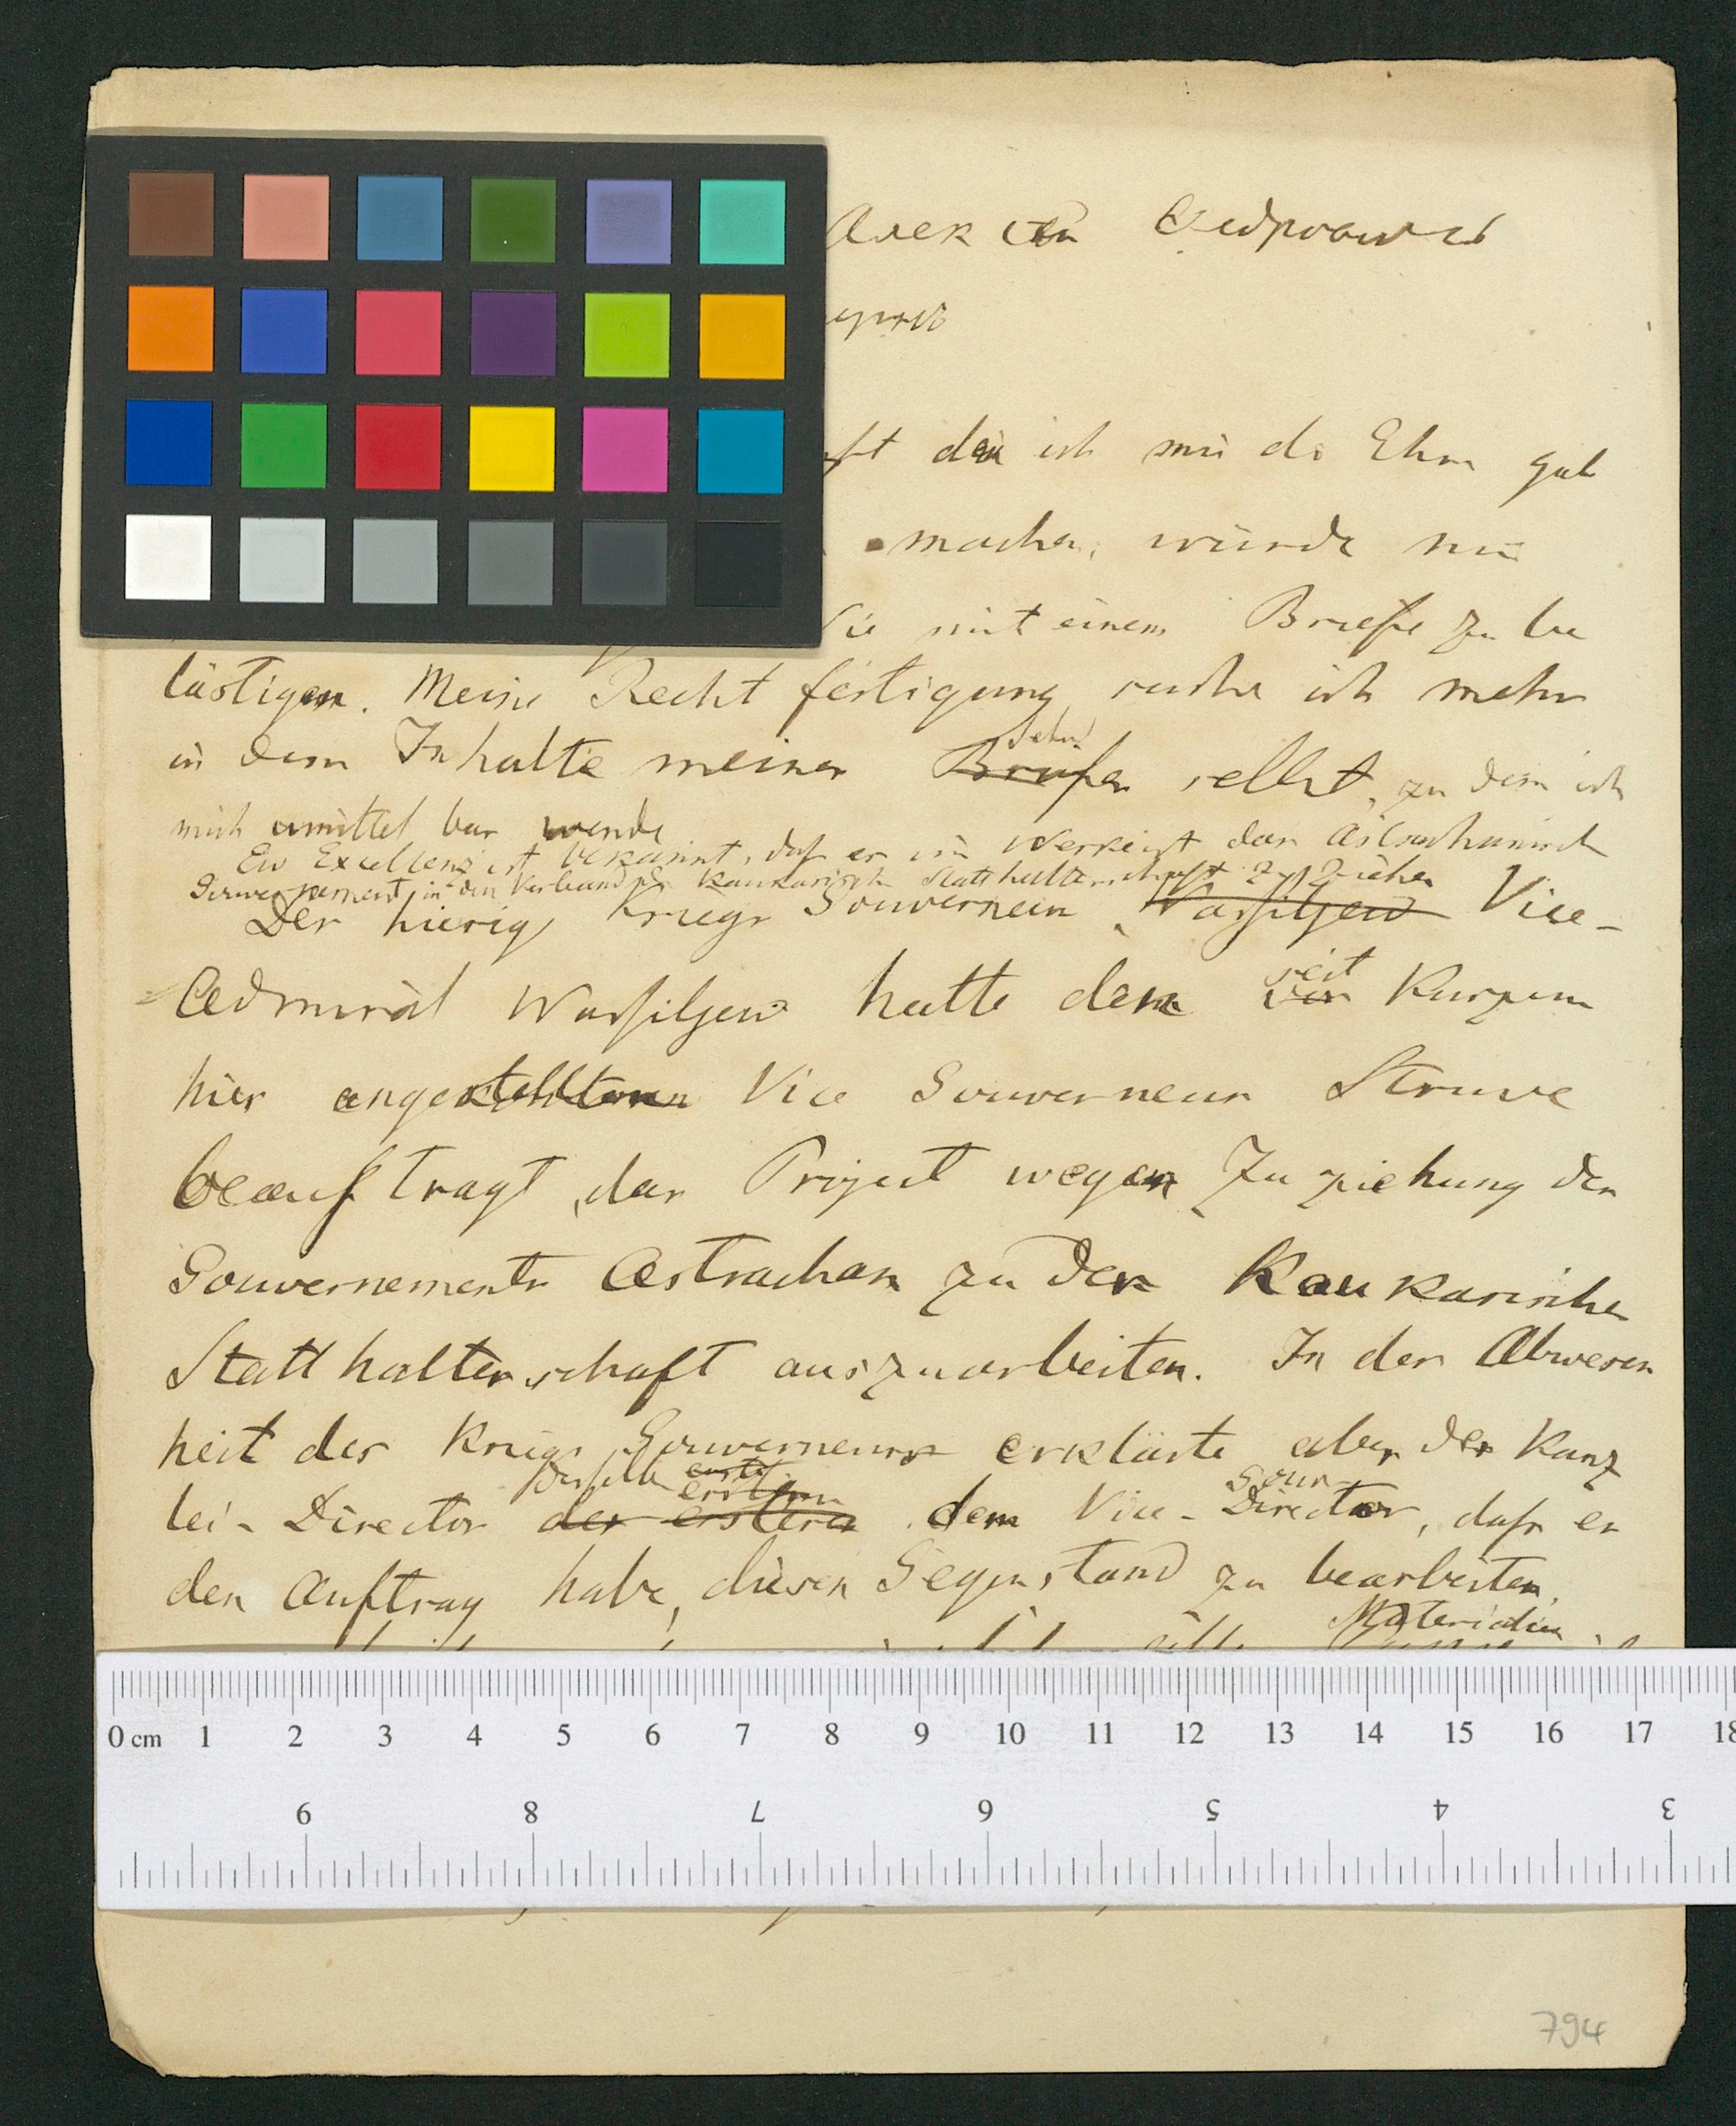 ich mir die Ehre geb
machen, würde mir
Sie mit einem Briefe zu be
lästigen. Meine Recht fertigung suche ich mehr
in dem Inhalte meines Briefes selbst, zu dem ich
mich unmittel bar wende
Ew Excellenz ist bekannt, daß er im Werke ist das Astrachanisch
Gouvernement in den Verband der Kaukasischen Statthalterschaft zu ziehen
Der hiesige Kriegs Gouverneur Wassiljew Vice-
Admiral Wassiljew hatte dem seit vor Kurzem
hier angestellten Vice Gouverneur Struve
beauf tragt, das Project wegen Zu ziehung des
Gouvernements Astrachan zu der Kaukasischen
Statt halter schaft auszuarbeiten. In der Abwesen
heit des Kriegs Gouverneurs erklärte aber der Kanz
derselbe erstern Gour
lei- Director der erstere dem Vice- Director, daß er
den Auftrag habe, diesen Gegenstand zu bearbeiten,
Materialien
0 cm 1 2 3 4 5 6 7 8 9 10 11 12 13 14 15 16 17 18
9 8 7 6 5 4 3
794